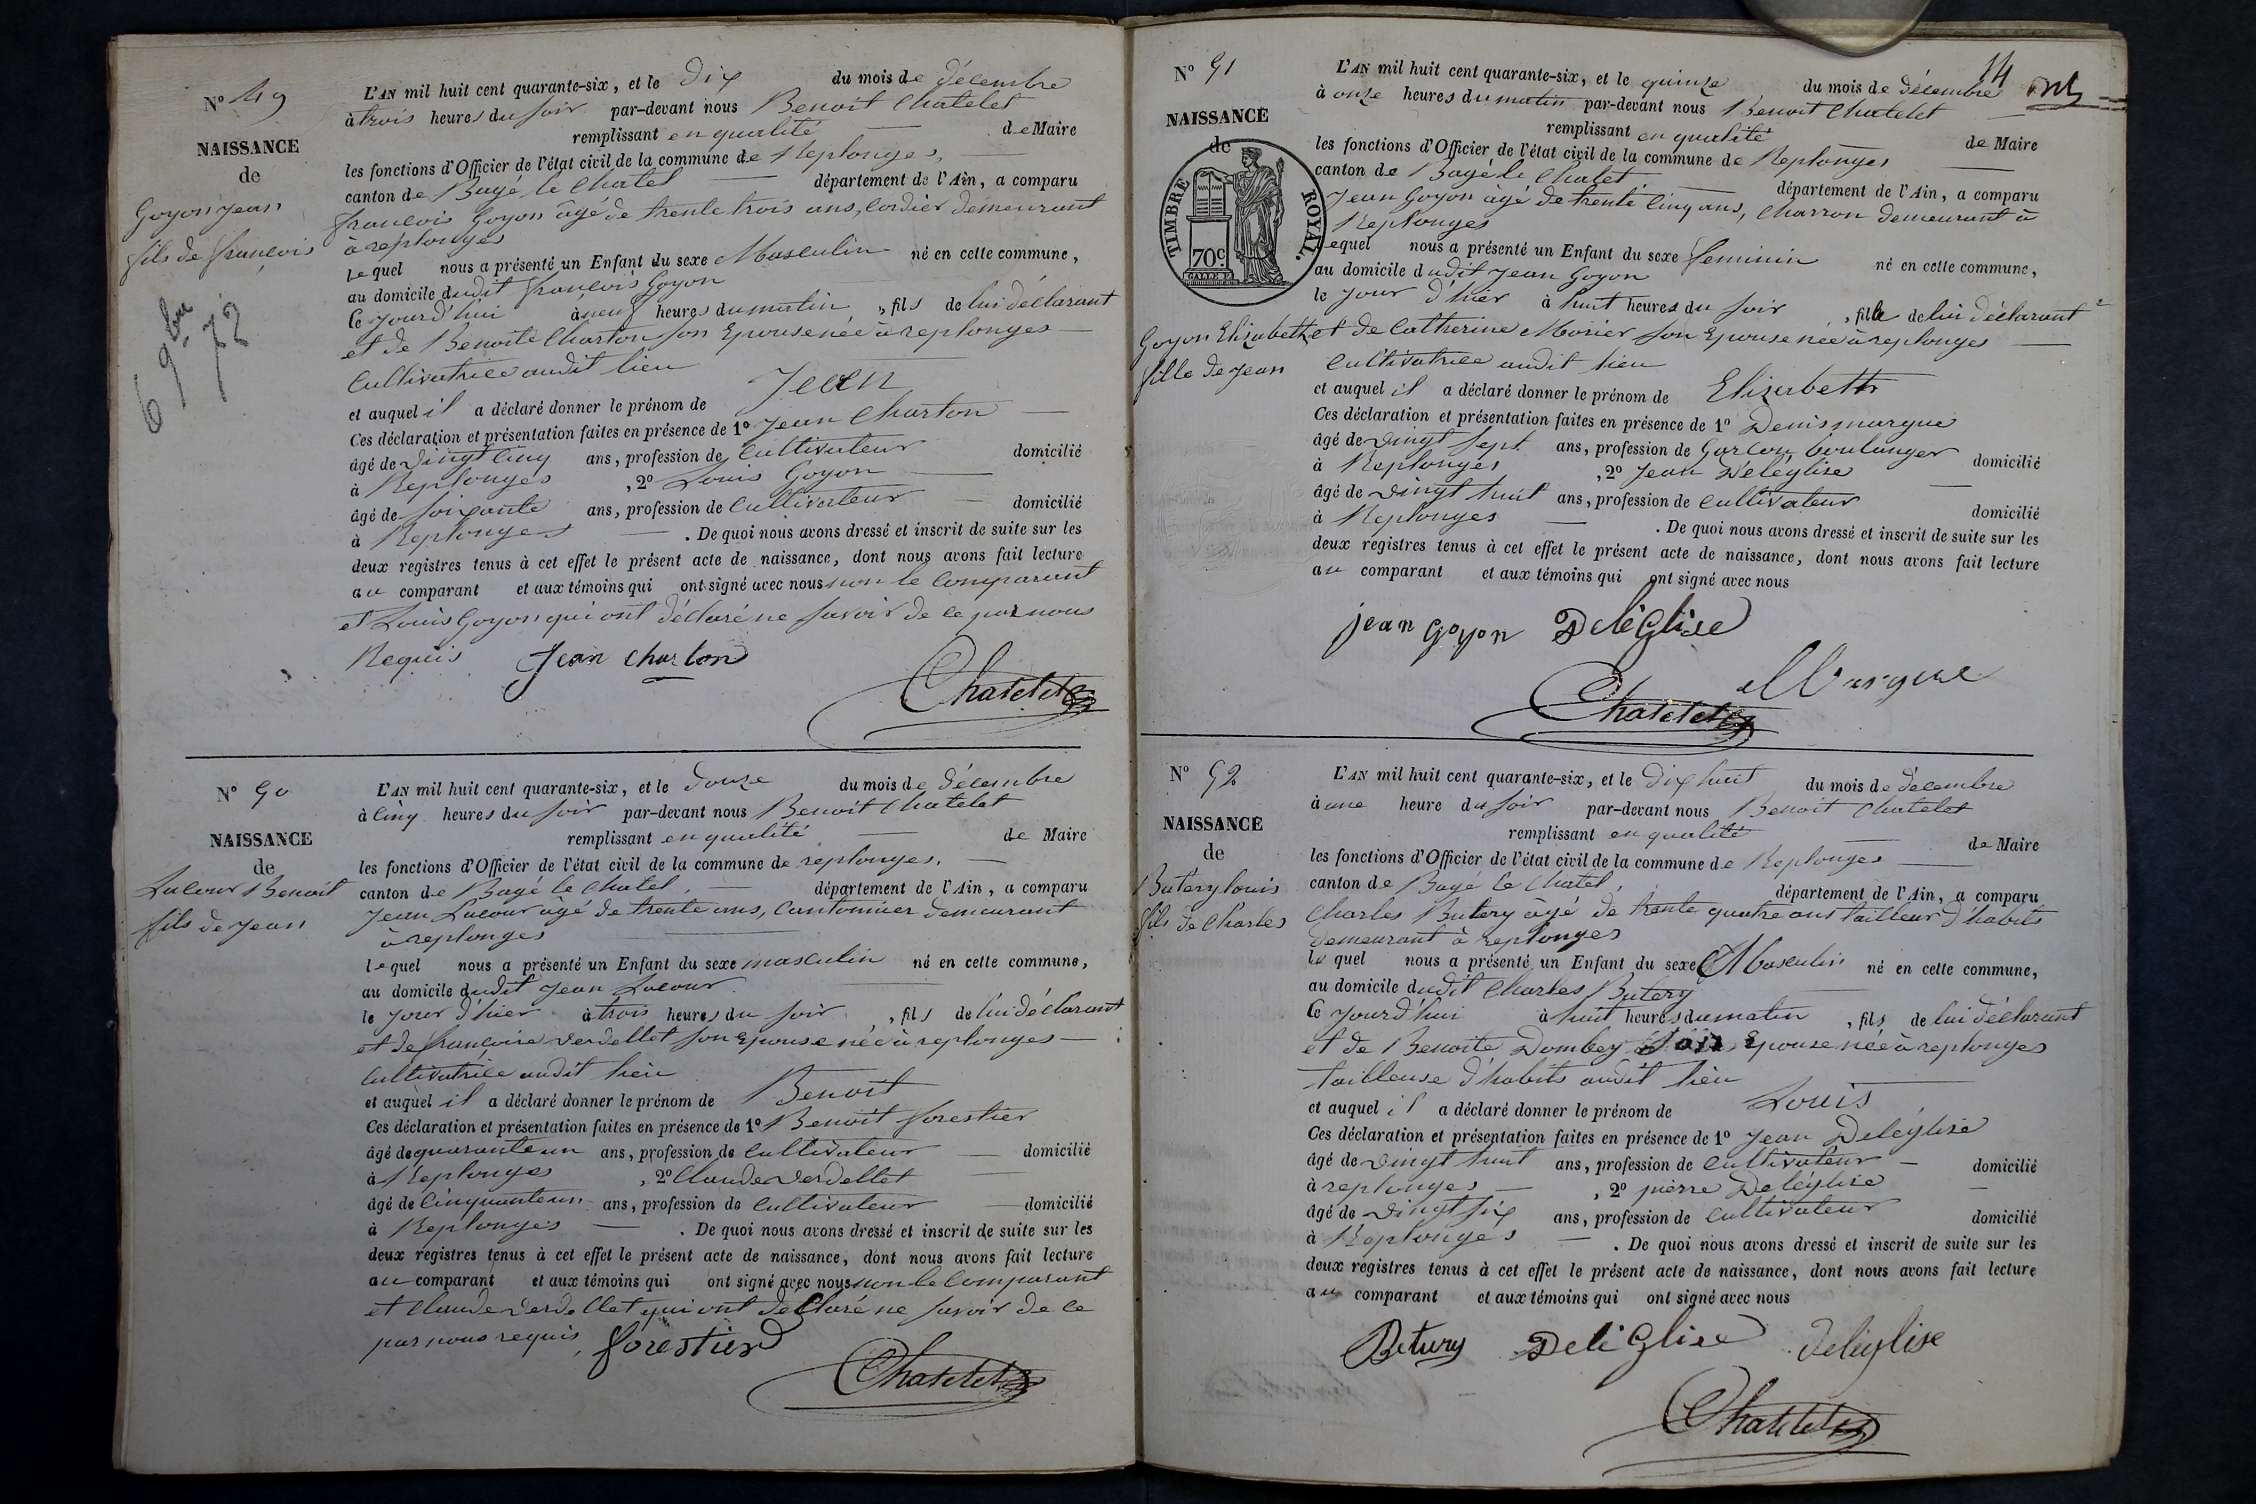 N° 49
NAISSANCE
de
Goyon Jean
fils de françois
L'AN mil huit cent quarante-six, et le dix du mois de décembre
à trois heures du soir par-devant nous Benoit Chatelet
remplissant en qualité de Maire
les fonctions d'Officier de l'état civil de la commune de Replonges,
canton de Bagé le Chatel département de l'Ain, a comparu
françois Goyon âgé de trente trois ans, Cordier demeurant
à replonges
lequel nous a présenté un Enfant du sexe Masculin né en cette commune,
au domicile dudit françois Goyon
Ce jourd'hui à neuf heures du matin, fils de lui déclarant
et de Benoite Charton son Epouse née à replonges
Cultivatrice audit lieu
et auquel il a déclaré donner le prénom de Jean
Ces déclaration et présentation faites en présence de 1° Jean Charton
âgé de vingt cinq ans, profession de Cultivateur domicilié
à Replonges, 2° Louis Goyon
âgé de soixante ans, profession de Cultivateur domicilié
à Replonges. De quoi nous avons dressé et inscrit de suite sur les
deux registres tenus à cet effet le présent acte de naissance, dont nous avons fait lecture
au comparant et aux témoins qui ont signé avec nous non le Comparant
et Louis Goyon qui ont déclaré ne savoir de ce par nous
Requis Jean Charton
Chatelet
N° 50
NAISSANCE
de
Lacour Benoit
fils de Jean
L'AN mil huit cent quarante-six, et le douze du mois de décembre
à Cinq heures du soir par-devant nous Benoit Chatelet
remplissant en qualité de Maire
les fonctions d'Officier de l'état civil de la commune de replonges,
canton de Bagé le Chatel, département de l'Ain, a comparu
Jean Lacour âgé de trente ans, Cantonnier demeurant
à replonges
lequel nous a présenté un Enfant du sexe masculin né en cette commune,
au domicile dudit Jean Lacour
le jour d'hier à trois heures du soir, fils de lui déclarant
et de françoise Verdellet son Epouse née à replonges
Cultivatrice audit lieu
et auquel il a déclaré donner le prénom de Benoit
Ces déclaration et présentation faites en présence de 1° Benoit forestier
âgé de quarante un ans, profession de Cultivateur domicilié
à Replonges, 2° Claude Verdellet
âgé de Cinquante un ans, profession de Cultivateur domicilié
à Replonges. De quoi nous avons dressé et inscrit de suite sur les
deux registres tenus à cet effet le présent acte de naissance, dont nous avons fait lecture
au comparant et aux témoins qui ont signé avec nous non le Comparant
et Claude Verdellet qui ont déclaré ne savoir de ce
par nous requis, forestier
Chatelet
14
N° 51
NAISSANCE
de
TIMBRE ROYAL.
70c
Goyon Elizabeth
fille de Jean
L'AN mil huit cent quarante-six, et le quinze du mois de décembre
à onze heures du matin par-devant nous Benoit Chatelet
remplissant en qualité de Maire
les fonctions d'Officier de l'état civil de la commune de Replonges
canton de Bagé le Chatel, département de l'Ain, a comparu
Jean Goyon âgé de trente cinq ans, Charron demeurant à
Replonges
lequel nous a présenté un Enfant du sexe feminin né en cette commune,
au domicile dudit Jean Goyon
le jour d'hier à huit heures du soir, fille de lui déclarant
et de Catherine Morier son Epouse née à replonges
Cultivatrice audit lieu
et auquel il a déclaré donner le prénom de Elizabeth
Ces déclaration et présentation faites en présence de 1° Denis margue
âgé de vingt sept ans, profession de Garçon boulanger domicilié
à Replonges, 2° Jean Deléglise
âgé de vingt huit ans, profession de Cultivateur domicilié
à Replonges. De quoi nous avons dressé et inscrit de suite sur les
deux registres tenus à cet effet le présent acte de naissance, dont nous avons fait lecture
au comparant et aux témoins qui ont signé avec nous
jean goyon Deléglise
Margue
Chatelet
N° 52
NAISSANCE
de
Butery louis
fils de Charles
L'AN mil huit cent quarante-six, et le dix huit du mois de décembre
à une heure du soir par-devant nous Benoit Chatelet
remplissant en qualité de Maire
les fonctions d'Officier de l'état civil de la commune de Replonges
canton de Bagé le Chatel, département de l'Ain, a comparu
Charles Butery âgé de trente quatre ans tailleur d'habits
demeurant à replonges
lequel nous a présenté un Enfant du sexe Masculin né en cette commune,
au domicile dudit Charles Butery
Ce jourd'hui à huit heures du matin, fils de lui déclarant
et de Benoite Dombey son Epouse née à replonges
tailleuse d'habits audit lieu
et auquel il a déclaré donner le prénom de Louis
Ces déclaration et présentation faites en présence de 1° Jean Deléglise
âgé de vingt huit ans, profession de Cultivateur domicilié
à replonges, 2° pierre Deléglise
âgé de vingt six ans, profession de Cultivateur domicilié
à Replonges. De quoi nous avons dressé et inscrit de suite sur les
deux registres tenus à cet effet le présent acte de naissance, dont nous avons fait lecture
au comparant et aux témoins qui ont signé avec nous
Butery Deléglise deléglise
Chatelet